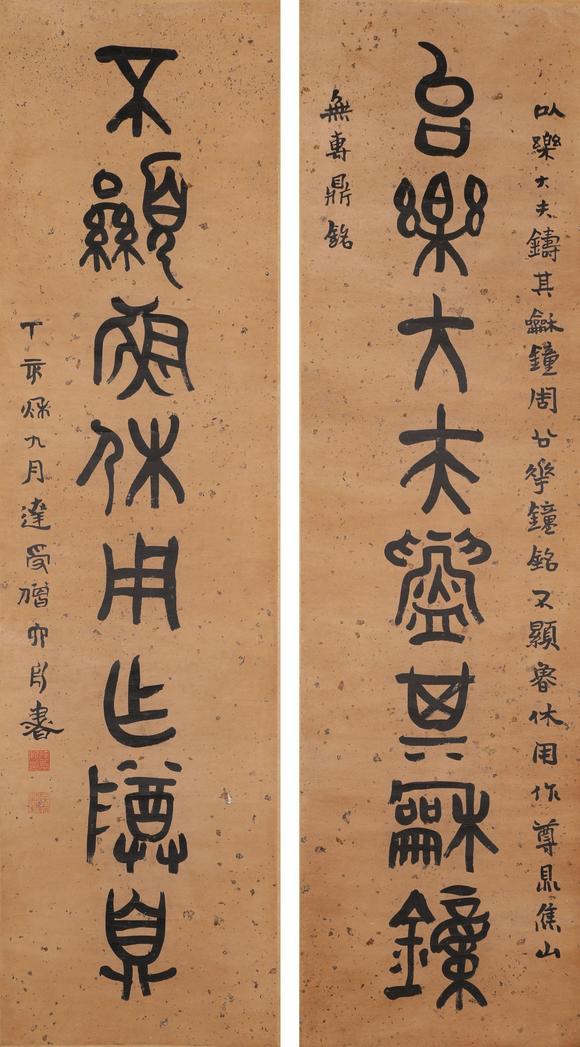 以樂大夫鑄其龢鐘周公華鐘銘不顯魯休用作尊鼎焦山
㠯樂大夫鑄其龢鐘
無專鼎銘
不顯魯休用乍尊鼎
丁亥秋九月達受僧六舟書